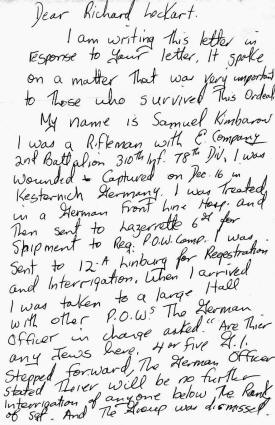 Dear Richard Lockart.
I am writing this letter in
response to your letter, It spoke
on a matter that was very important
to Those who survived This Ordeal
My name is Samuel Kimbarow
I was a Rifleman with E. Company
2nd Battalion 310th Inf. 78th Div. I was
wounded & Captured on Dec. 16 in
Kesternich Germany. I was Treated
in a German Front Line Hosp. and
Then sent to Lazerrette 6st for
Shipment to Reg. P.O.W. Camp. I was
Sent to 12-A Linburg for Regestration
and Interrigation. When I arrived
I was taken to a large Hall
with other P.O.W.s The German
Officer in change asked "Are Thier
any Jews here. 4 or Five G.I.
Stepped forward, The German Officer
stated Thier will be no further
Interrigation of anyone below The Rank
of Sgt. And The Group was dismissed.